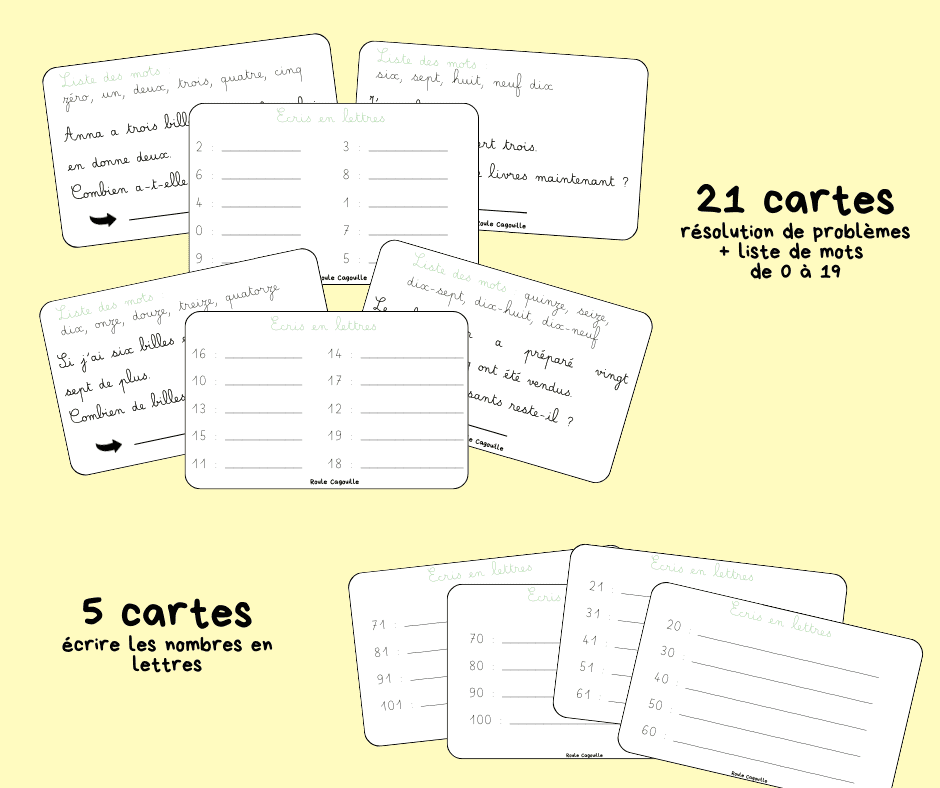 Liste des mots
zéro, un, deux, trois, quatre, cinq
Anna a trois
en donne deux.
Combien a-t-elle
Liste des mots
six, sept, huit, neuf dix
trois.
livres maintenant ?
Roule Cagoulle
Ecris en lettres
2 : ____________ 3 : ____________
6 : ____________ 8 : ____________
4 : ____________ 1 : ____________
0 : ____________ 7 : ____________
9 : 5 :
Cagoulle
21 cartes
résolution de problèmes
+ liste de mots
de 0 à 19
Liste des mots
dix, onze, douze, treize, quatorze
Si j'ai six billes
sept de plus.
Combien de billes
Liste des mots quinze, seize,
dix-sept, dix-huit, dix-neuf
a préparé vingt
ont été vendus.
reste-il ?
Cagoulle
Ecris en lettres
16 : ____________ 14 : ____________
10 : ____________ 17 : ____________
13 : ____________ 12 : ____________
15 : ____________ 19 : ____________
11 : ____________ 18 : ____________
Roule Cagoulle
5 cartes
écrire les nombres en
lettres
Ecris en lettres
71 :
81 :
91 :
101 :
Ecris
70 :
80 :
90 :
100 :
Roule Cagoulle
Ecris en lettres
21 :
31 :
41 :
51 :
61 :
Ecris en lettres
20 :
30 :
40 :
50 :
60 :
Roule Cagoulle